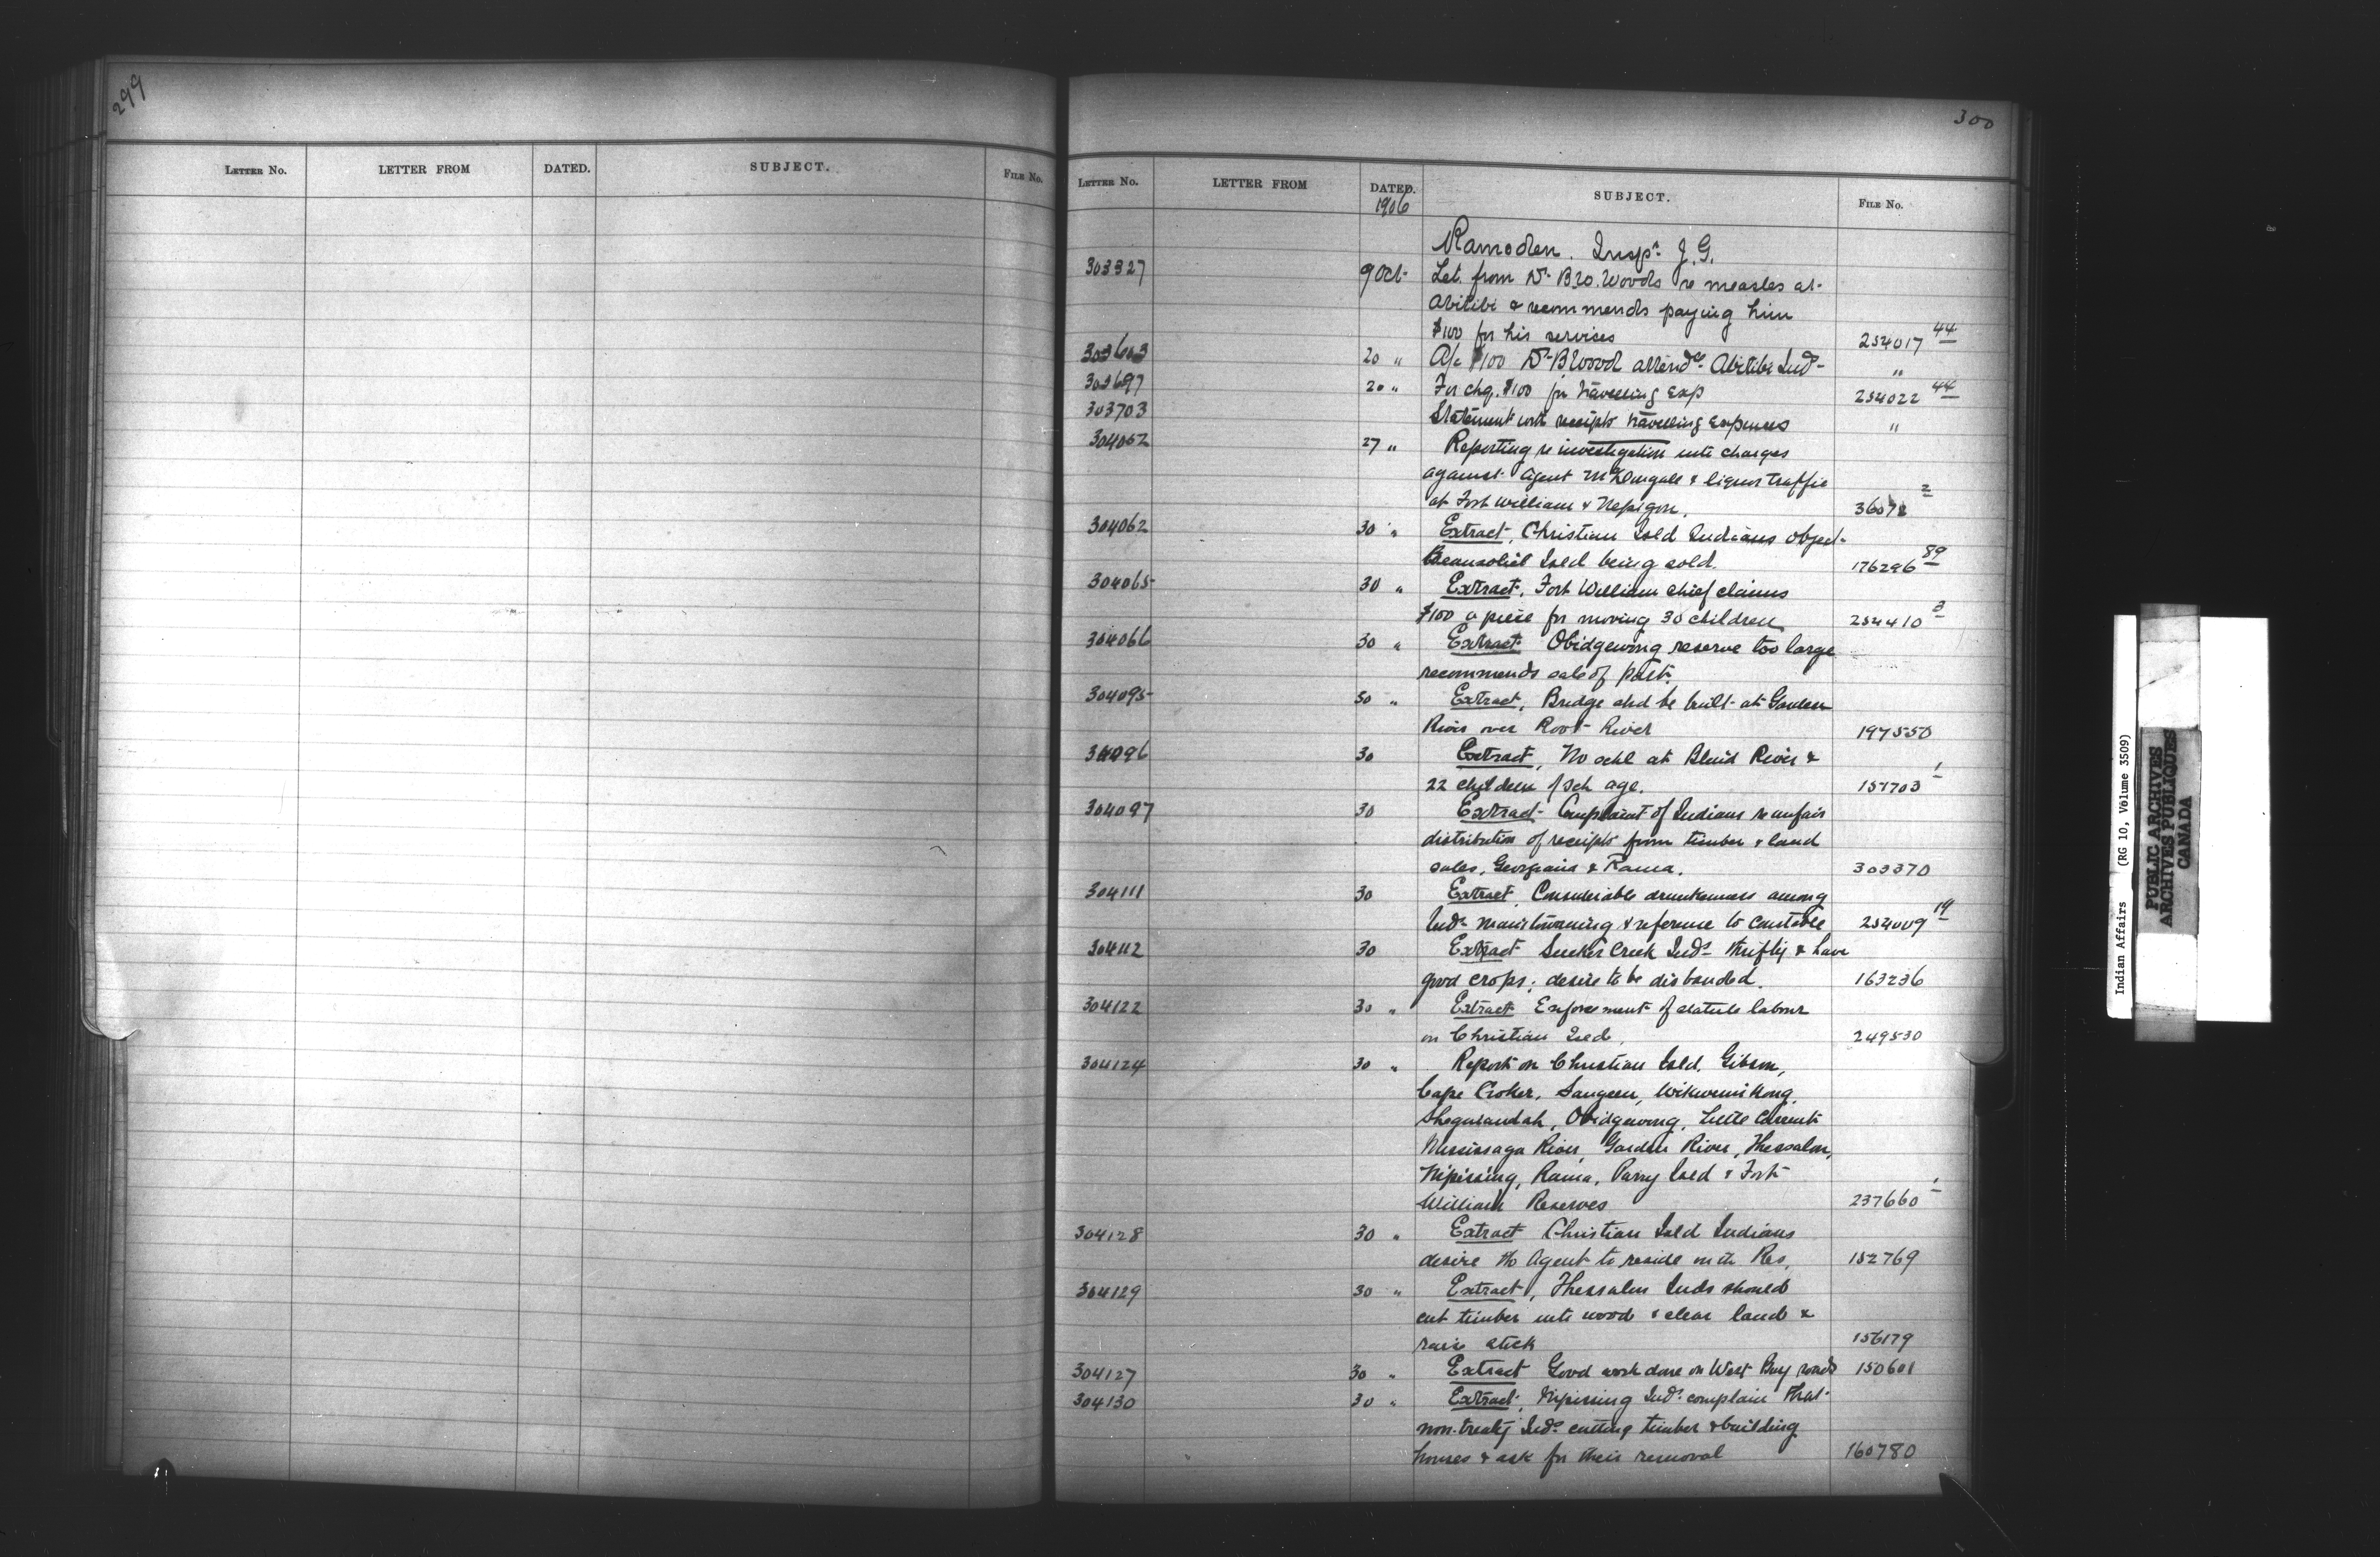 299
LETTER No. LETTER FROM DATED. SUBJECT. FILE No.
300
LETTER No. LETTER FROM DATED. SUBJECT. FILE No.
1906
Ramsden. Inspr J. G.
303327 9 Oct Let. from Dr Geo. Woods re measles at
Abitibi & recommends paying him
$100 for his services 254017 44
303603 20 " A/c $100 Dr Wood attendce Abitibi Inds "
303697 20 " For chq. $100 for travelling exp 254022 44
303703 Statement with receipts travelling expenses "
304052 27 " Reporting re investigation into charges
against Agent McDougall & liquor traffic
at Fort William & Nepigon. 2
304062 30 " Extract, Christian Isld Indians object
Beausoliel Isld being sold. 176296 89
304065 30 " Extract, Fort William chief claims
$100 a piece for moving 30 children 254410 3
304066 30 " Extract Obidgewong reserve too large
recommends sale of part.
304095 30 " Extract, Bridge shd be built at Garden
River over Root River 197550
304096 30 Extract, No schl at Blind River &
22 children of sch age. 151703 1
304097 30 Extract Complaint of Indians re unfair
distribution of receipts from timber & land
sales, Georgina & Rama. 303370
304111 30 Extract, Considerable drunkenness among
Inds Manitowaning & reference to Constable 254009 19
304112 30 Extract Sucker Creek Inds thrifty & have
good crops; desire to be disbanded. 163236
304122 30 " Extract Enforcement of statute labour
on Christian Isld, 249530
304124 30 " Report on Christian Isld, Gibson,
Cape Croker, Saugeen, Wikwemikong,
Sheguiandah, Obidgewong, Little Current
Mississaga River, Garden River, Thessalon,
Nipissing, Rama, Parry Isld & Fort
William Reserves 237660 1
304128 30 " Extract Christian Isld Indians
desire no Agent to reside on the Res, 152769
304129 30 " Extract, Thessalon Inds should
cut timber into wood & clear land &
raise stock 156179
304127 30 " Extract Good work done on West Bay roads 150601
304130 30 " Extract, Nipissing Inds complain that
non-treaty Inds cutting timber & building
houses & ask for their removal 160780
Indian Affairs (RG 10, Volume 3509)
PUBLIC ARCHIVES
ARCHIVES PUBLIQUES
CANADA